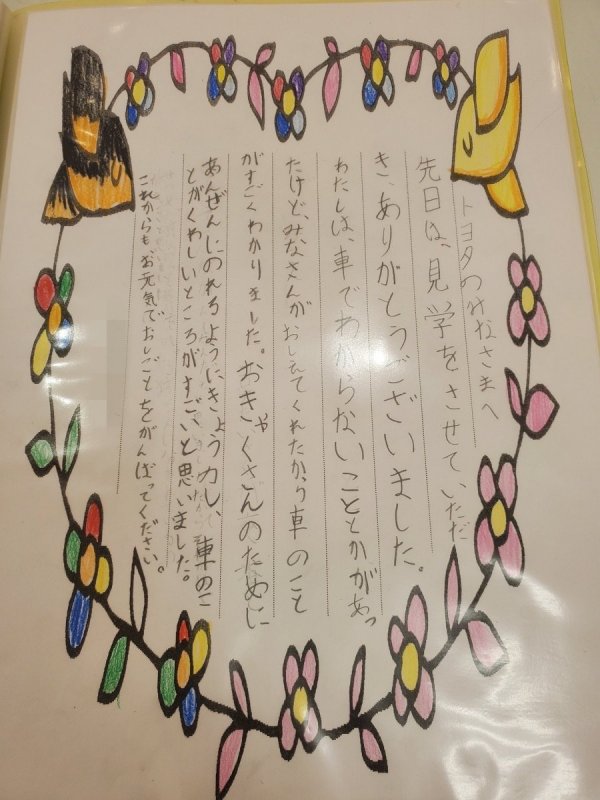 トヨタのみなさまへ
先日は、見学をさせていただ
き、ありがとうございました。
わたしは、車でわからないこととかがあっ
たけど、みなさんがおしえてくれたから車のこと
がすごくわかりました。おきゃくさんのために
あんぜんにのれるようにきょう力し、車のこ
とがくわしいところがすごいと思いました。
これからもお元気でおしごとをがんばってください。